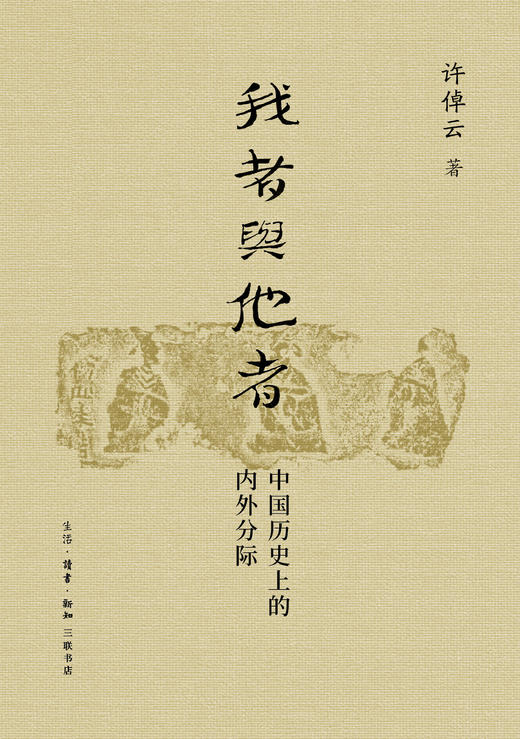 许倬云 著
我者與他者
中国历史上的
内外分际
生活·讀書·新知 三联书店